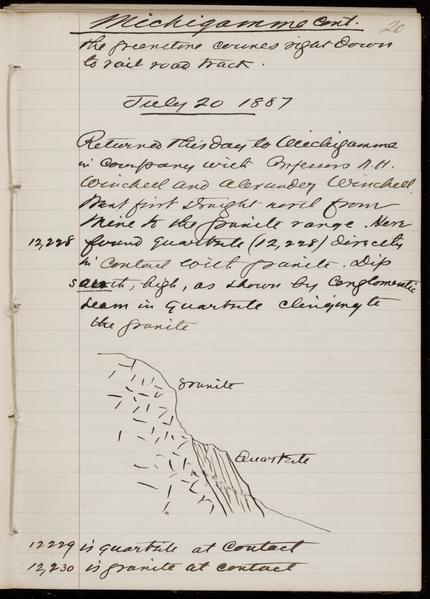 Michigamme Cont.
20
the greenstone comes right down
to rail road track.
July 20 1887
Returned this day to Michigamme
in company with Professors N.H.
Winchell and Alexander Winchell.
Went first straight north from
Mine to the granite range. Here
12,228 found quartzite (12,228) directly
in contact with granite. Dip
south, high, as shown by conglomeratic
seam in quartzite clinging to
the granite
granite
Quartzite
12229 is quartzite at contact
12,230 is granite at contact